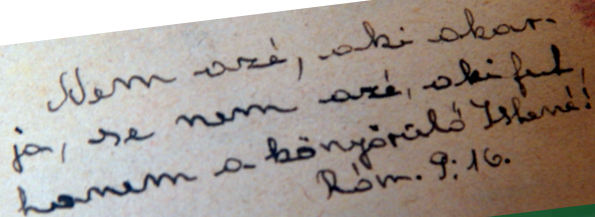 Nem azé, aki akar-
ja, se nem azé, aki fut,
hanem a könyörülő Istené!
Róm. 9:16.